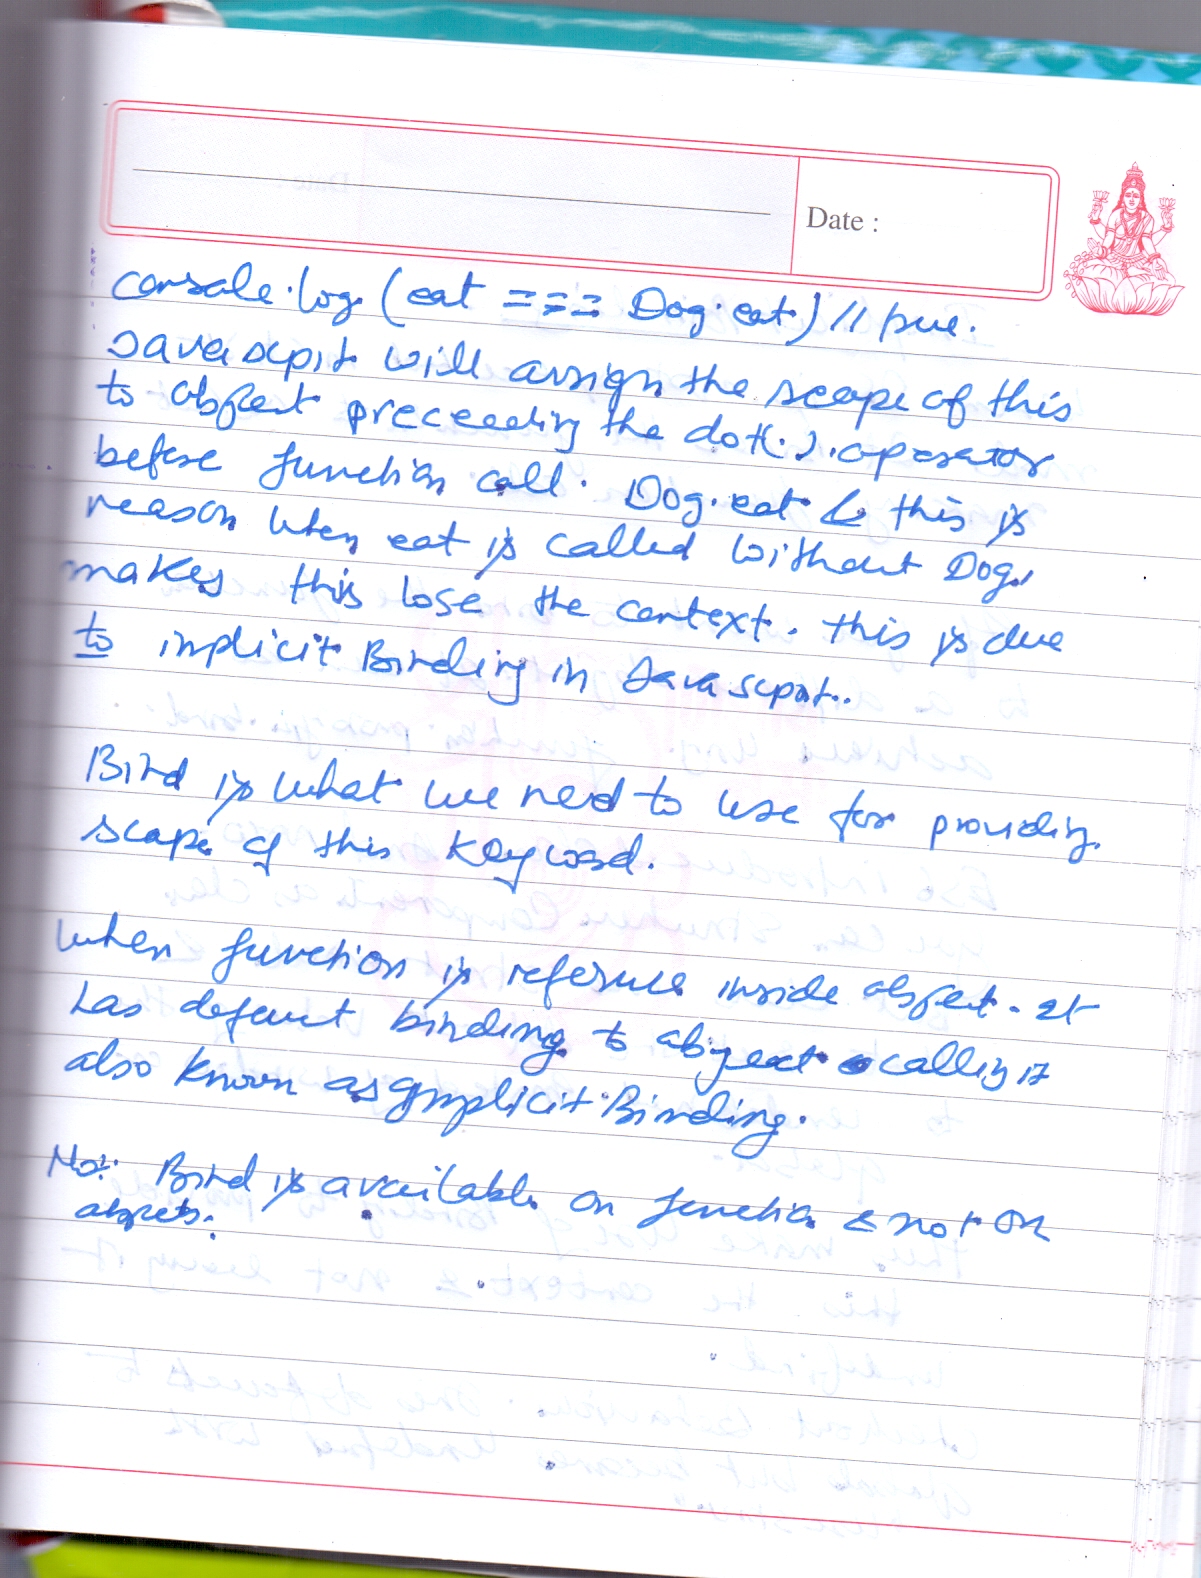 Date :
console.log (eat === Dog.eat) // true.
Javascpit will assign the scope of this
to object preceeding the dot(.) operator
before function call. Dog.eat this is
reason when eat is called without Dog,
makes this lose the context. this is due
to implicit Binding in Javascpit..
Bind is what we need to use for providing
scope of this keyword.
When function is refernce inside object. It
has default binding to object calling it
also known as Implicit Binding.
Not: Bind is available on function & not on
objects.